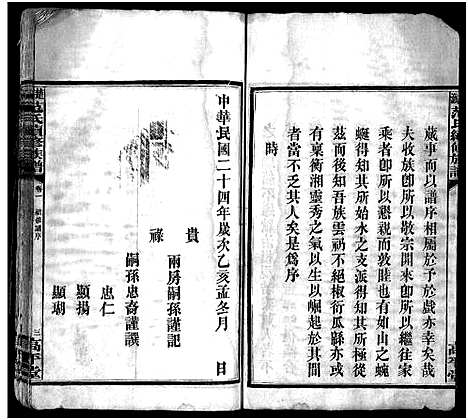 蕆事而以譜序相屬於予於戲亦幸矣哉
夫收族卽所以敬宗開來卽所以繼往家
乘者卽所以懇親而敦睦也有如山之蜿
蜒得知其所始水之支派得知其所止在
茲而後知吾族雲礽不絕椒衍瓜緜亦或
有稟衡湘靈秀之氣以生以崛起於其間
者當不乏其人矣是爲序
時
中華民國二十四年歲次乙亥孟冬月　日
貴
祿
兩房嗣孫謹記
嗣孫忠裔謹譔
忠仁
顯揚
顯瑚
卷一
續修譜序
三
高平堂